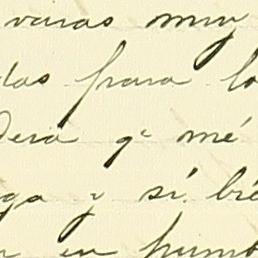 varas muy
das para lo
dera qe mé
ga y si bié
en punt